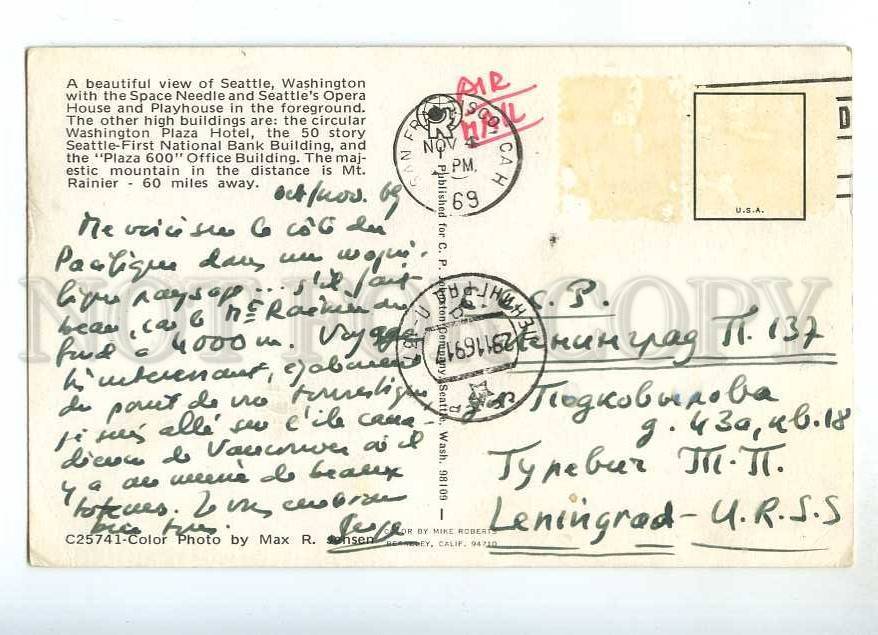 A beautiful view of Seattle, Washington
with the Space Needle and Seattle's Opera
House and Playhouse in the foreground.
The other high buildings are: the circular
Washington Plaza Hotel, the 50 story
Seattle-First National Bank Building, and
the "Plaza 600" Office Building. The maj-
estic mountain in the distance is Mt.
Rainier - 60 miles away.
oct/nov. 69
Me voici sur la côte du
Pacifique dans un magni-
fique paysage... s'il fait
beau, car le Mt Rainier du
fond a 4000 m. Voyage
intéressant, également
du point de vue touristique
je suis allé sur l'île cana-
dienne de Vancouver où il
y a un musée de beaux
totems. Je vous embrasse
bien tous.
C25741-Color Photo by Max R. Jensen
AIR
MAIL
SAN FRANCISCO CA
NOV 4
PM
69
Published for C. P. Johnston Company, Seattle, Wash. 98109
COLOR BY MIKE ROBERTS
BERKELEY, CALIF. 94710
U.S.A.
ЛЕНИНГРАД
C. P.
Ленинград П. 137
Подковырова
д. 43а, кв. 18
Гуревич Т. П.
Leningrad - U.R.S.S
NOT FOR COPY